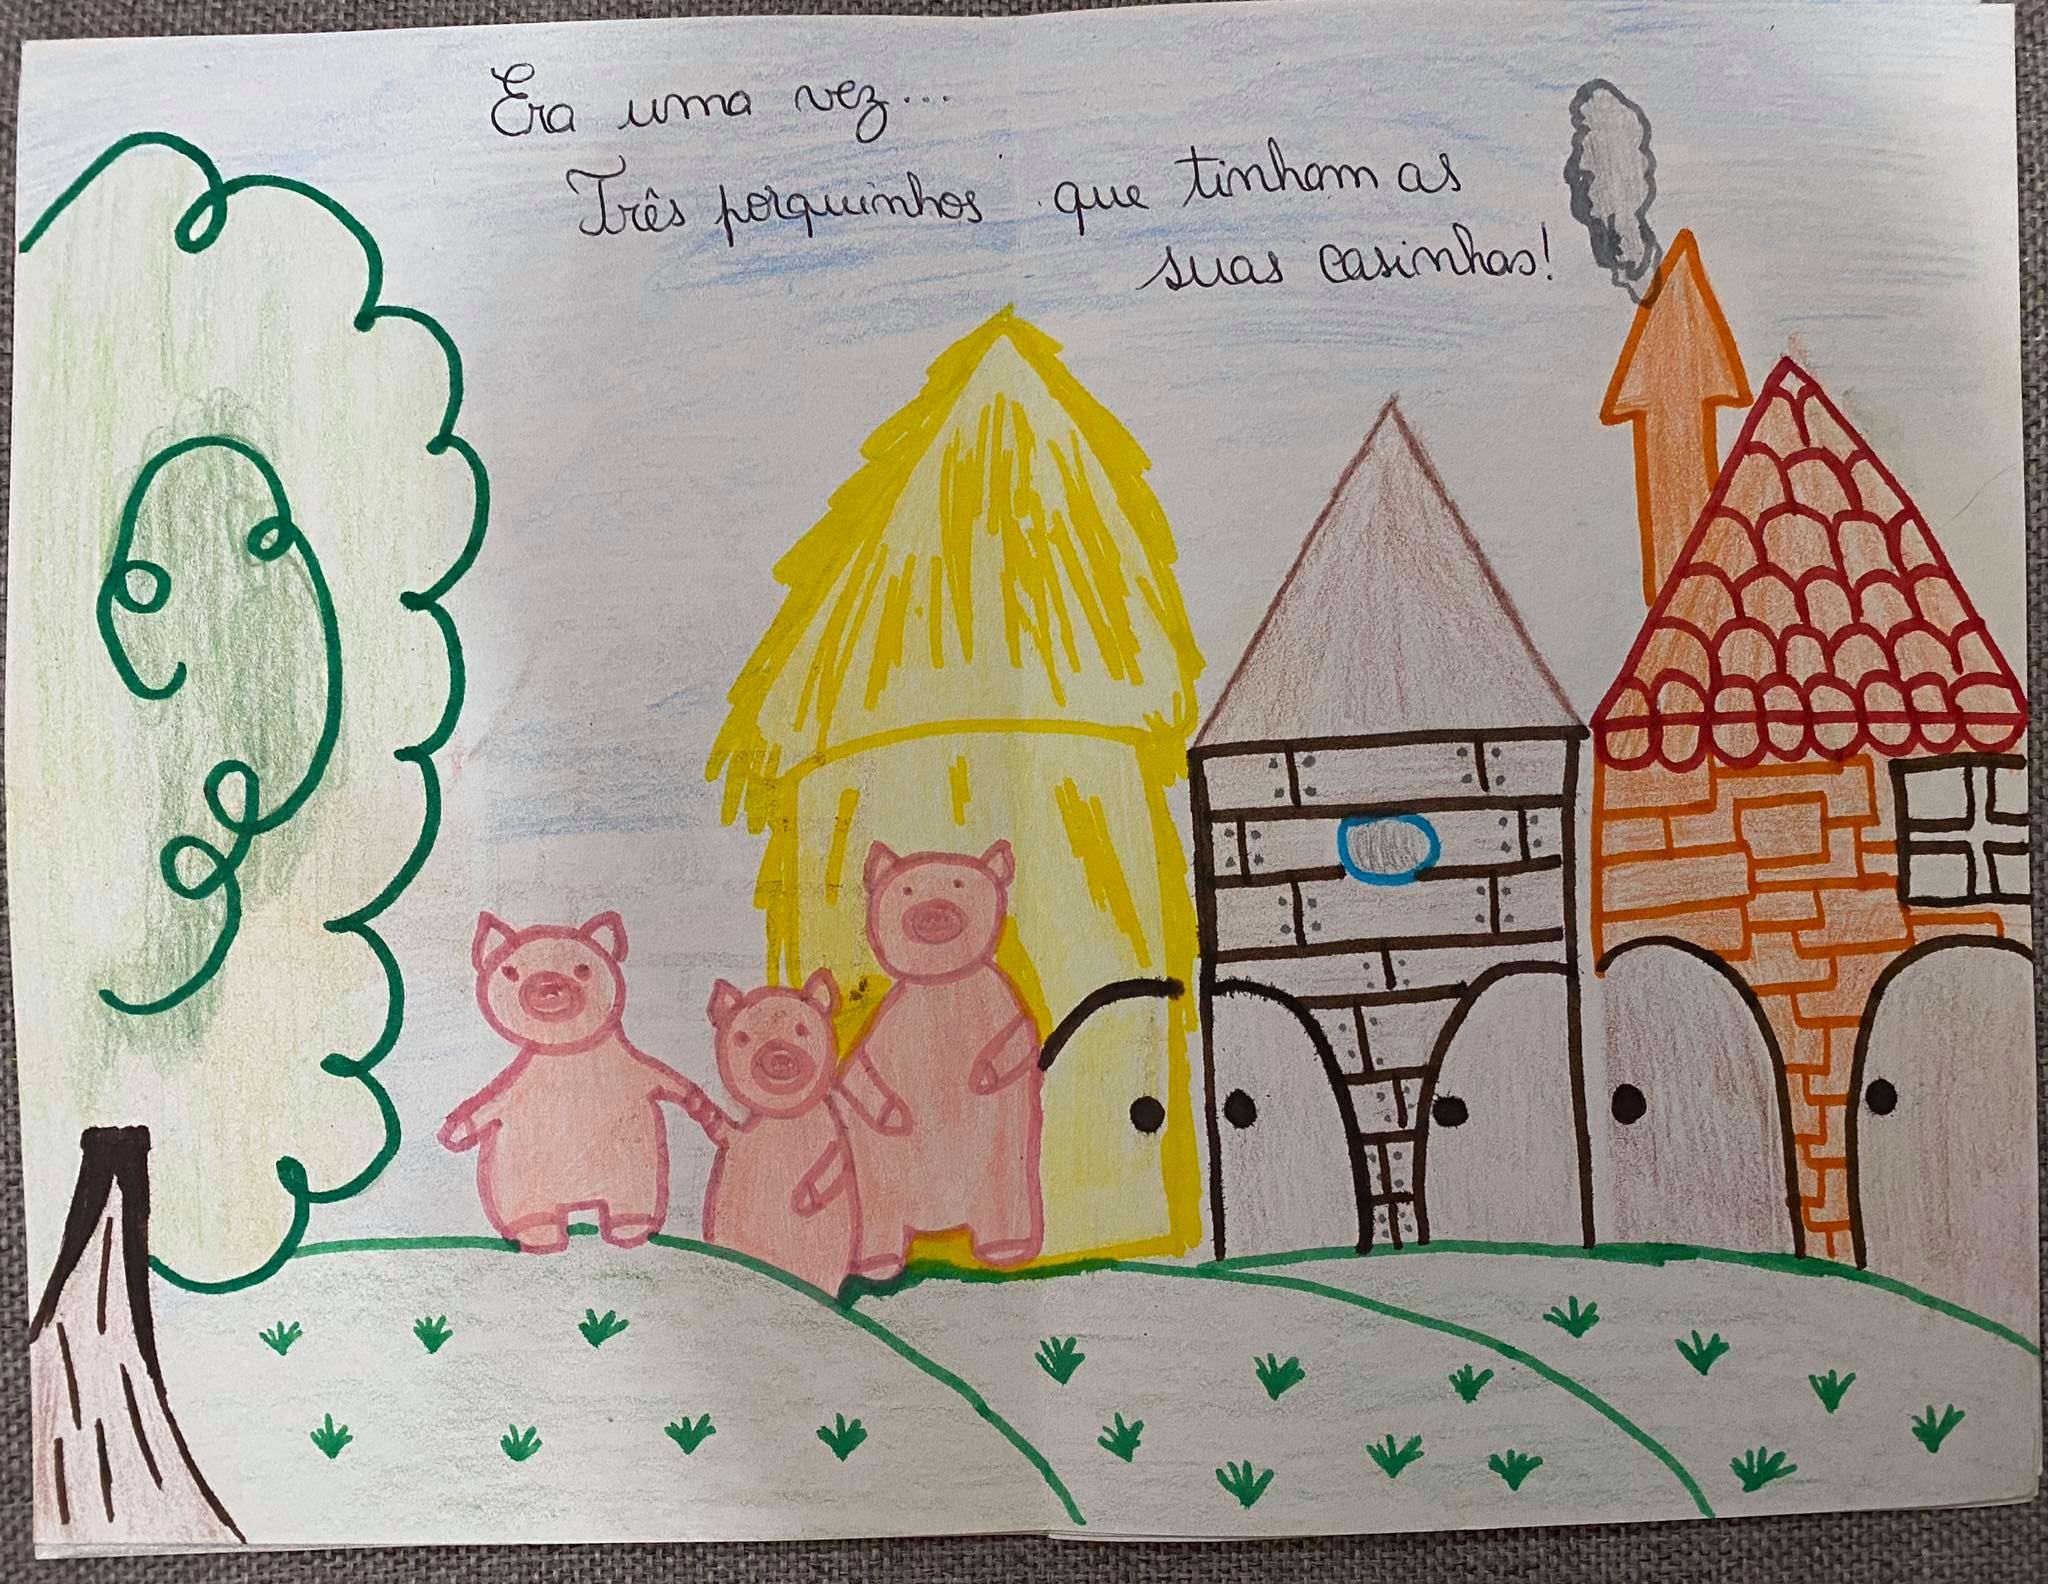 Era uma vez...
Três porquinhos que tinham as
suas casinhas!